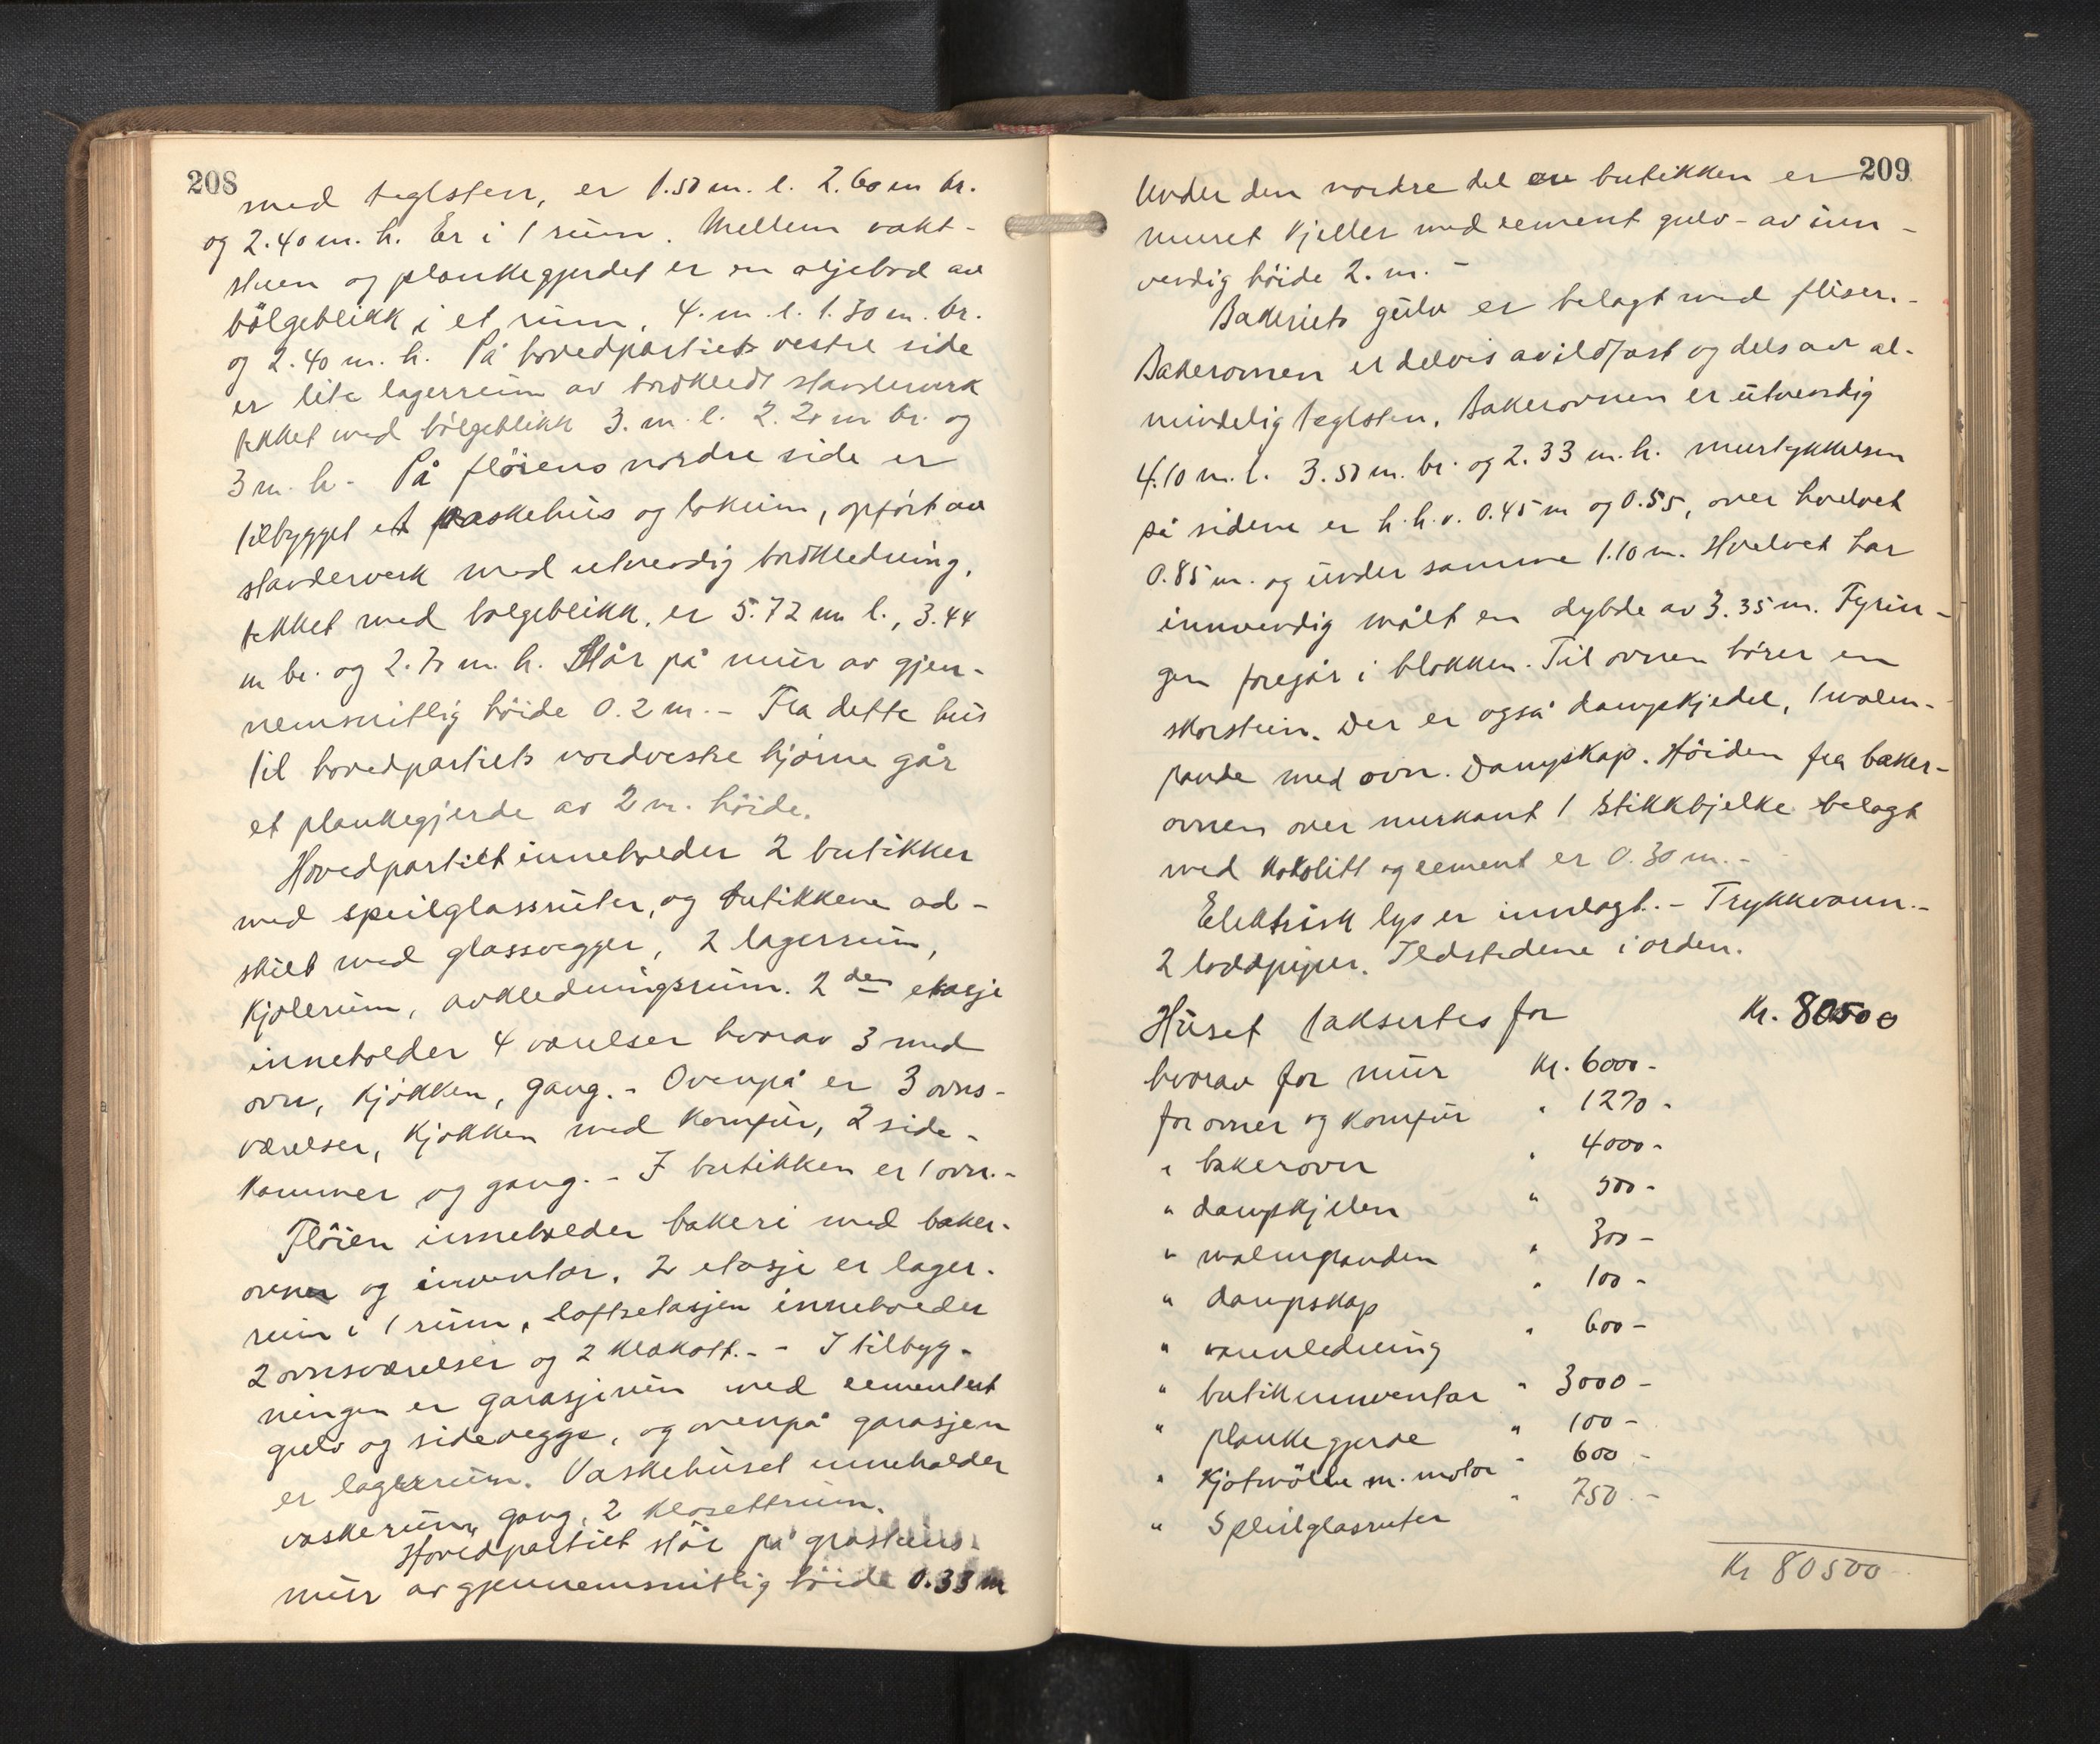 208
med teglsten, er 1.50 m. l. 2.60 m br.
og 2.40 m. h. Er i 1 rum. Mellem vakt-
stuen og plankegjerdet er en oljebod av
bölgeblikk i et rum, 4. m. l. 1.30 m. br.
og 2.40 m. h. På hovedpartiets vestre side
er lite lagerrum av bordkledt stenderverk
tekket med bölgeblikk 3. m. l. 2.20 m br. og
3 m. h. - På flöiens nordre side er
tilbygget et vaskehus og lokum, opfört av
standerverk med utvendig bordkledning,
tekket med bolgeblikk, er 5.72 m l., 3.44
m br. og 2.70 m. h. Står på mur av gjen-
nemsnitlig höide 0.2 m. - Fra dette hus
til hovedpartiets nordvestre hjörne går
et plankegjerde av 2 m. höide.
Hovedpartiet inneholder 2 butikker
med speilglassruter, og butikkene ad-
skilt med glassvegger, 2 lagerrum,
Kjölerum, avkledningsrum. 2 den etasje
inneholder 4 værelser hvorav 3 med
ovn, Kjökken, gang. - Ovenpå er 3 ovns-
værelser, Kjökken med Komfür, 2 side-
kammer og gang. - I butikken er 1 ovn. -
Flöien inneholder bakeri med baker-
ovn og inventar, 2 etasje er lager-
rum i 1 rum, loftsetasjen inneholder
2 ovnsværelser og 2 klækott. - - I tilbyg-
ningen er garasjerum med cementert
gulv og sidevegge, og ovenpå garasjen
er lagerrum. Vaskehuset inneholder
vaskerum, gang, 2 klosettrum.
Hovedpartiet står på gråsteins-
mur av gjennemsnitlig höide 0.33 m
209
Under den nordre del av butikken er
muret Kjeller med sement gulv - av inn-
vendig höide 2. m. -
Bakeriets gulv er belagt med fliser. -
Bakerovnen er delvis av ildfast og dels av al-
mindelig teglsten. Bakerovnen er utvendig
4.10 m. l. 3.50 m. br. og 2.33 m. h. murtykkelsen
på sidene er h. h. v. 0.45 m og 0.55, over hvelvet
0.85 m. og under samme 1.10 m. Hvelvet har
innvendig målt en dybde av 3.35 m. Fyrin-
gen foregår i blokken. Til ovnen hörer en
skorstein. Der er også dampkjedel, 1 malm-
pande med ovn. Dampskap. Höiden fra baker-
ovnen over murkant 1 stikkbjelke belagt
med Kokolitt og sement er 0.30 m. -
Elektrisk lys er innlagt. - Trykkvann. -
2 loddpiper. Ildstedene i orden.
Huset taksertes for Kr. 80500
hvorav for mur Kr. 6000 -
for ovner og Komfür " 1270 -
" bakerovn " 4000 -
" dampkjelen " 500 -
" malmpanden " 300 -
" dampskap " 100 -
" vannledning " 600 -
" butikkinventar " 3000 -
" plankegjerde " 100 -
" Kjötmölle m. motor " 600 -
" Speilglasruter " 750 -
Kr 80500 -